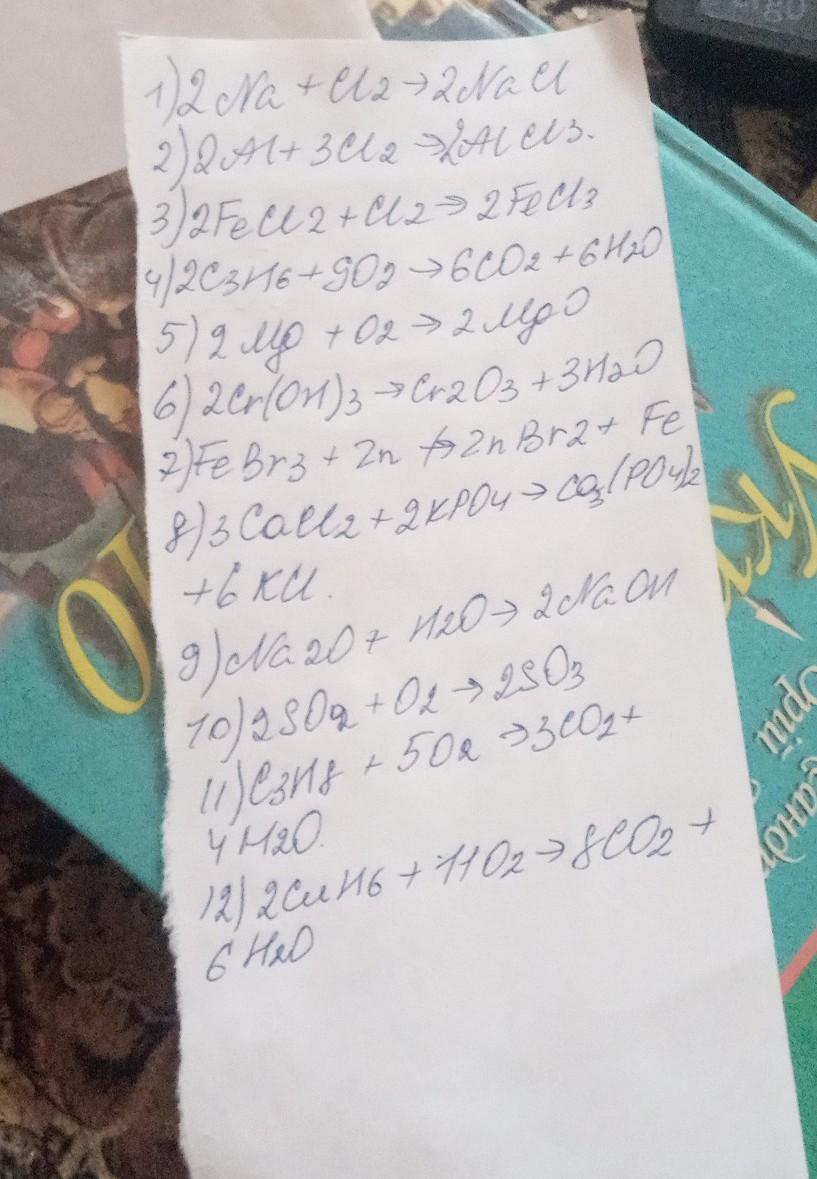 1) 2Na + Cl2 → 2NaCl
2) 2Al + 3Cl2 → 2AlCl3.
3) 2FeCl2 + Cl2 → 2FeCl3
4) 2C3H6 + 9O2 → 6CO2 + 6H2O
5) 2Mg + O2 → 2MgO
6) 2Cr(OH)3 → Cr2O3 + 3H2O
7) FeBr3 + Zn → ZnBr2 + Fe
8) 3CaCl2 + 2KPO4 → Ca3(PO4)2
+ 6KCl.
9) Na2O + H2O → 2NaOH
10) 2SO2 + O2 → 2SO3
11) C3H8 + 5O2 → 3CO2 +
4H2O.
12) 2C4H6 + 11O2 → 8CO2 +
6H2O
Ук